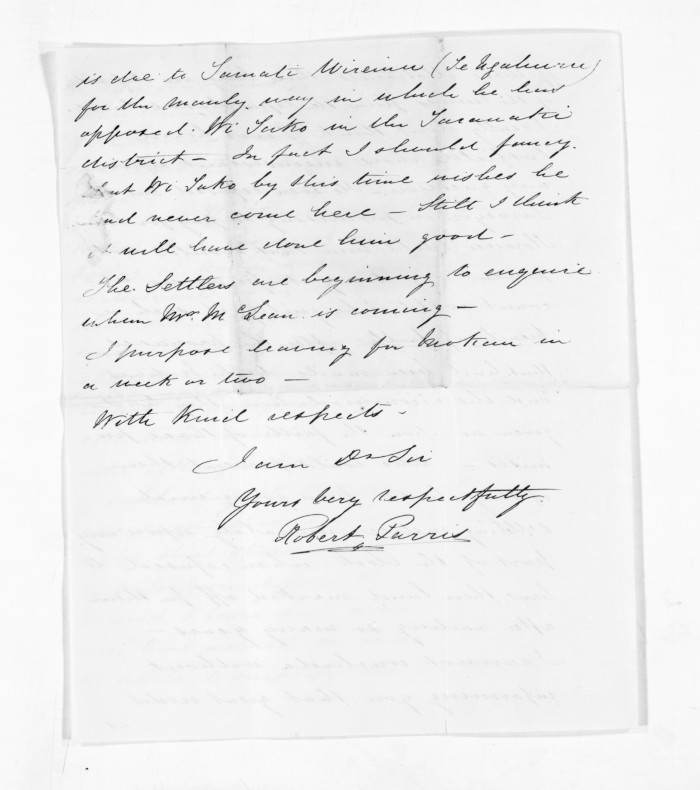 is due to Tamati Wiremu (Te Ngahuru)
for the manly way in which he has
opposed Wi Tako in the Taranaki
district — In fact I should fancy
that Wi Tako by this time wishes he
had never come here — Still I think
it will have done him good —
The Settlers are beginning to enquire
when Mr. McLean is coming —
I purpose leaving for Mokau in
a week or two —
With Kind respects -
I am Dr Sir
Yours very respectfully
Robert Parris